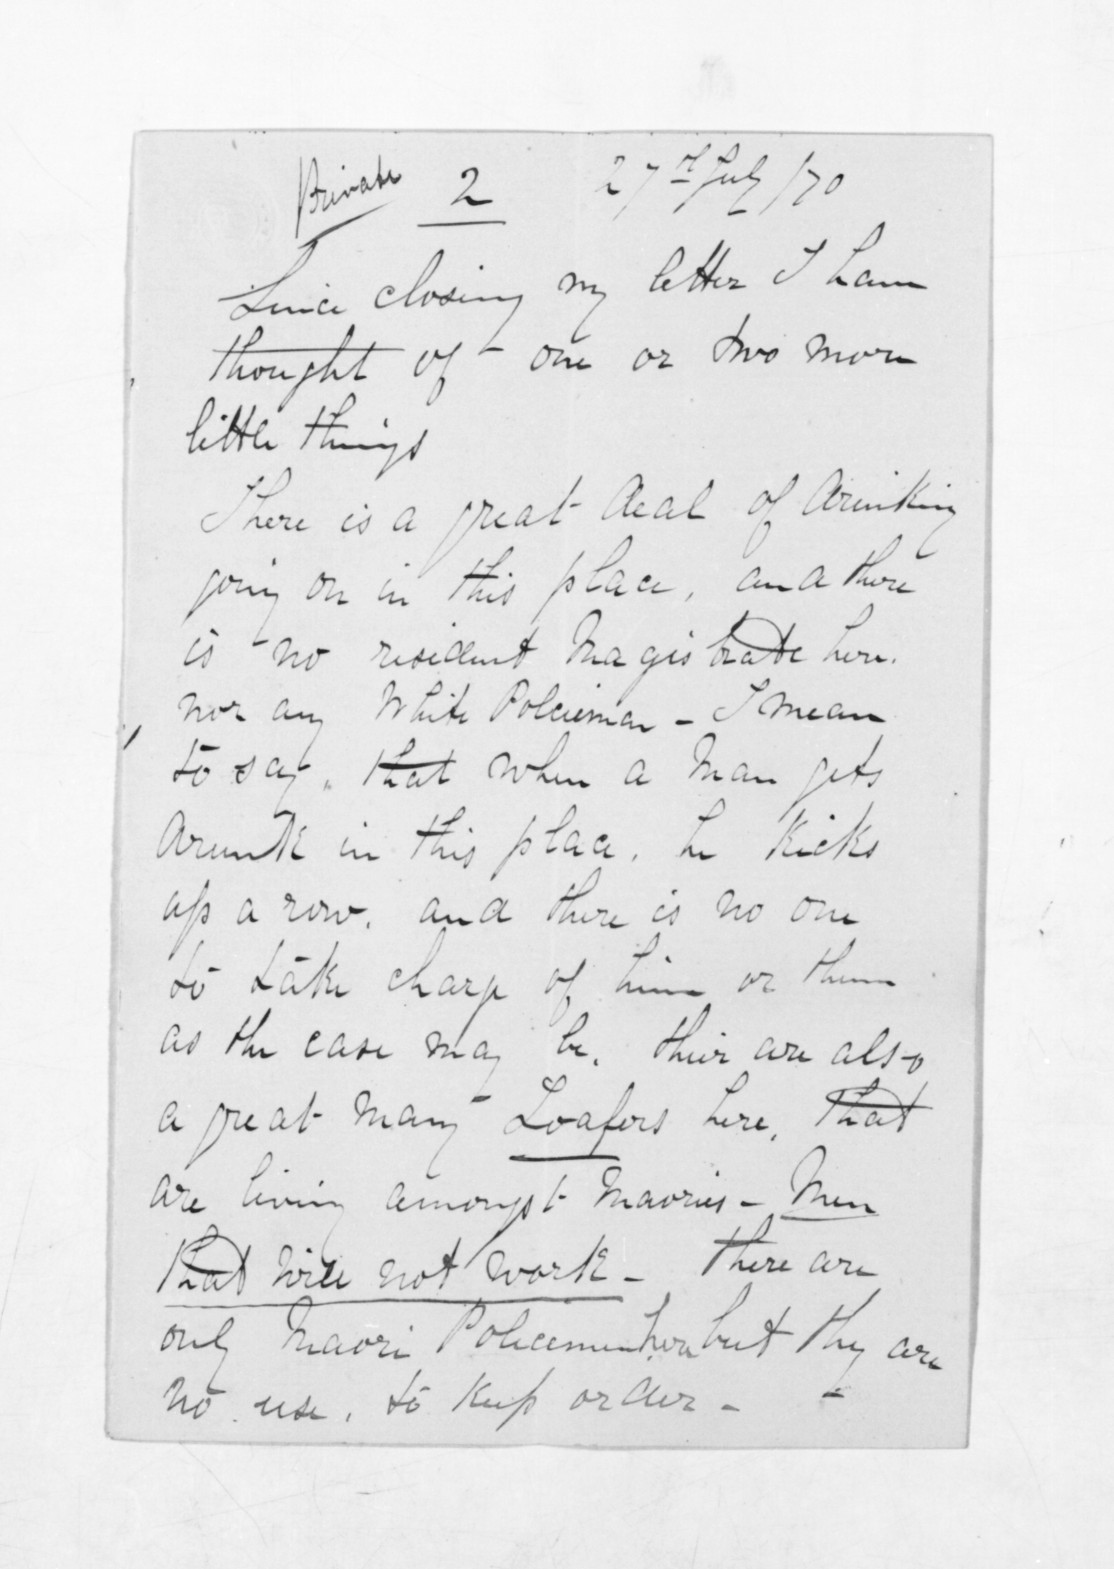 Private 2 27th July /70
Since closing my letter I have
thought of one or two more
little things
There is a great deal of drinking
going on in this place, and there
is no resident Magistrate here.
nor any White Policeman - I mean
to say, that when a Man gets
drunk in this place, he kicks
up a row, and there is no one
to take charge of him or them
as the case may be, their are also
a great many Loafers here, that
are living amongst Maories - Men
that will not work - there are
only Maori Policemen here but they are
no use, to keep order -